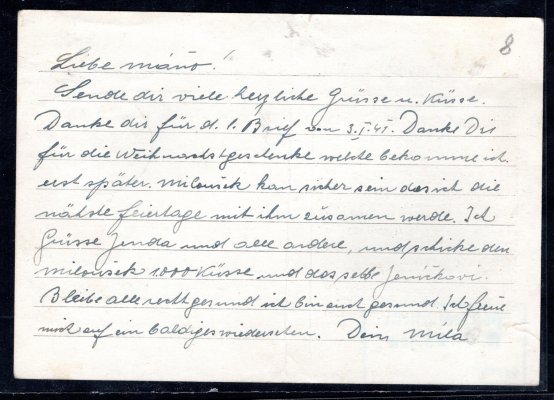 8
Liebe máňo!
Sende dir viele herzliche Grüsse u. Küsse.
Danke dir für d. l. Brief von 3.I.41. Danke Dir
für die Weihnachstgeschenke welche bekomme ich
erst später. Miloušek kan sicher sein das ich die
nähste feiertage mit ihm zusamen werde. Ich
Grüsse Jenda und alle andere, und schicke den
miloušek 1.000 Küsse und das selbe Jeníčkovi.
Bleibe alle recht gesund ich bin auch gesund. Ich freue
mich auf ein baldiges wiedersehen. Dein Míla